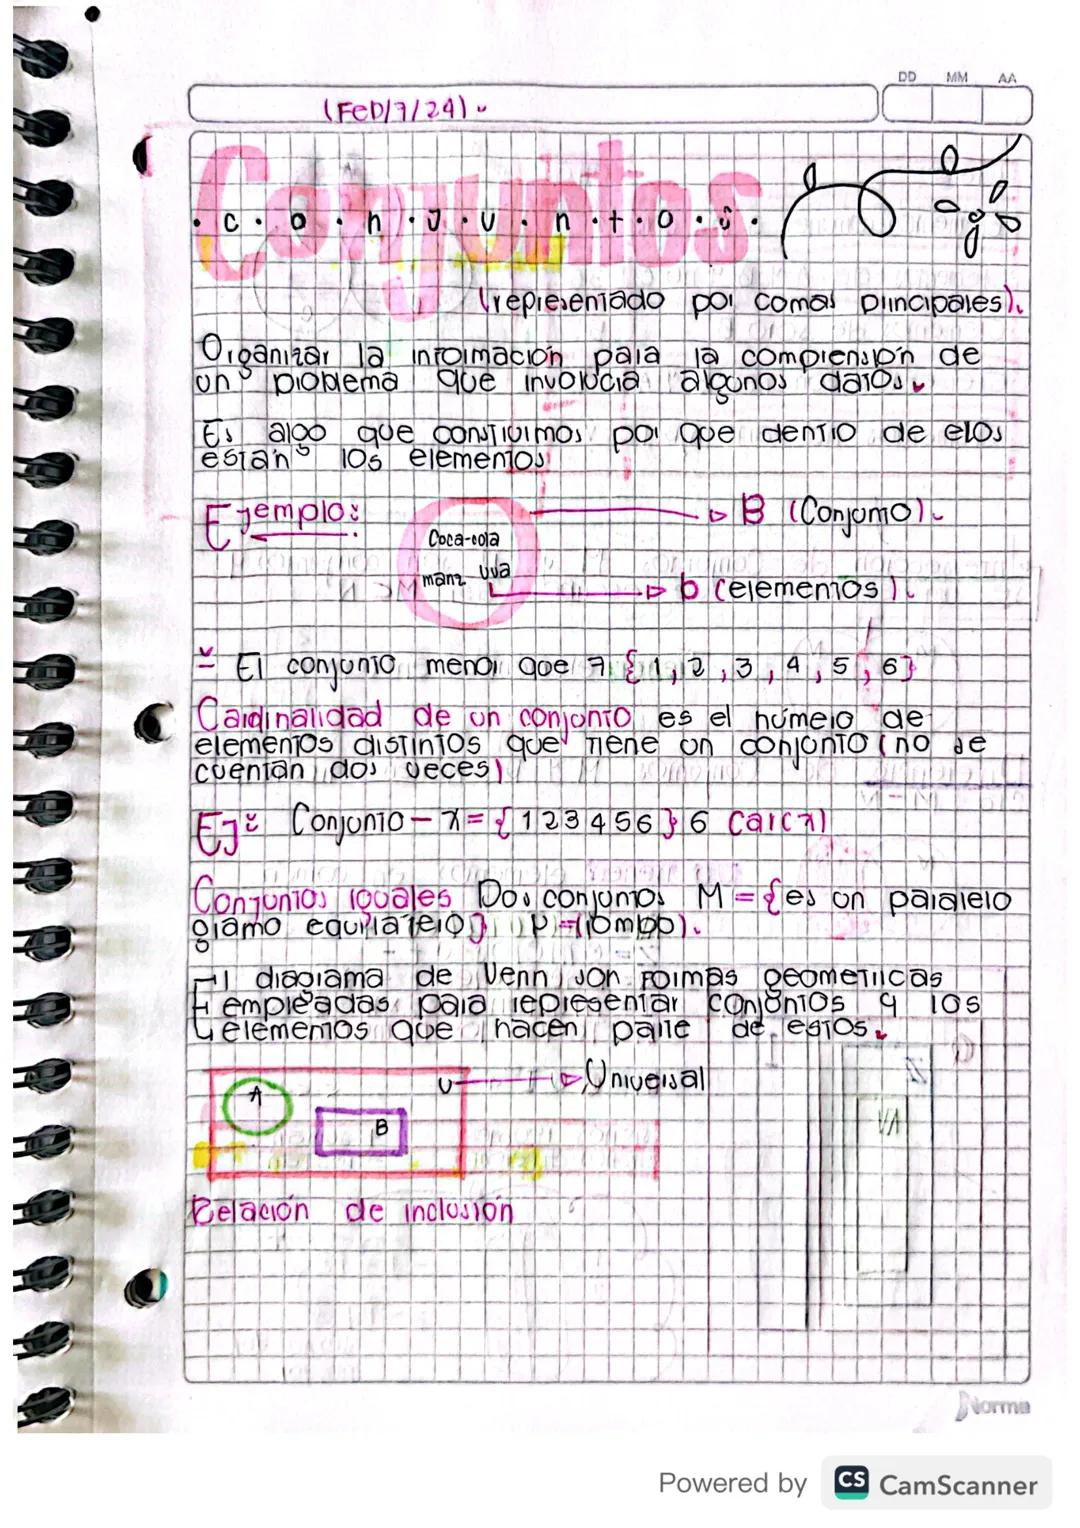 DD MM AA
(Feb/7/24).
Conjuntos
.c.o.n.j.u.n.t.o.s.
(representado por comas principales).
Organizar la información para la comprensión de
un problema que involucra algunos datos.
Es algo que construimos por que dentro de elos
están los elementos
Ejemplo:
B (Conjunto).
Coca-cola
manz uva
b (elementos).
El conjunto menor que 7 {1, 2, 3, 4, 5, 6}
Cardinalidad de un conjunto es el número de
elementos distintos que tiene un conjunto (no se
cuentan dos veces)
Ej: Conjunto - x = { 1 2 3 4 5 6 } 6 Car(x)
Conjuntos iguales Dos conjuntos M = {es un paralelo
gramo equilatero} P = (rombo).
El diagrama de Venn son formas geometricas
empleadas para representar conjuntos y los
elementos que hacen parte de estos.
A
B
U
Universal
Relación de inclusión
Norma
Powered by CS CamScanner